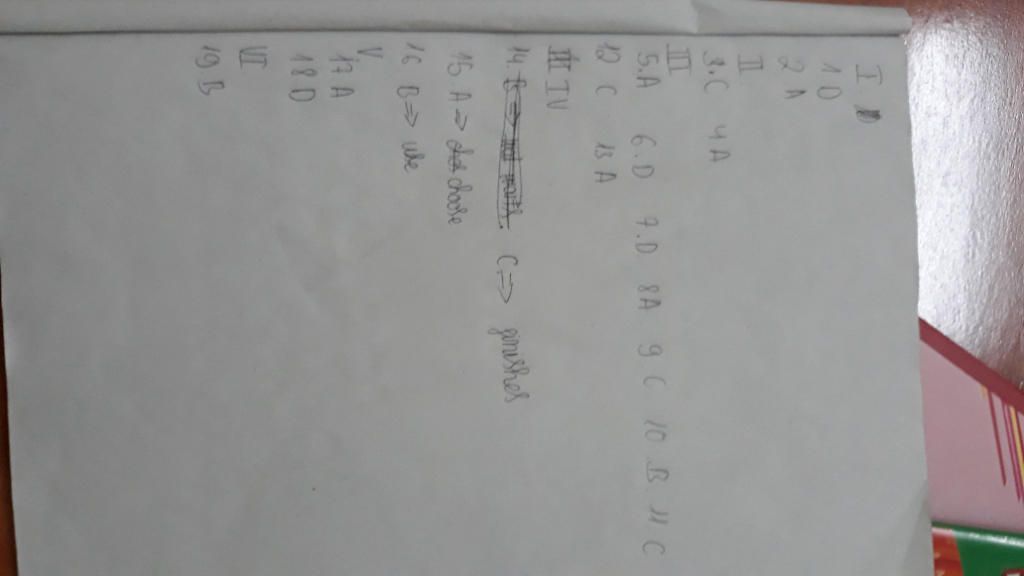 I
1 D
2 A
II
3. C 4 A
III
5. A 6. D 7. D 8 A 9 C 10 B 11 C
12 C 13 A
IV
14. C => finishes
15. A => choose
16 B => use
V
17 A
18 D
VI
19 B